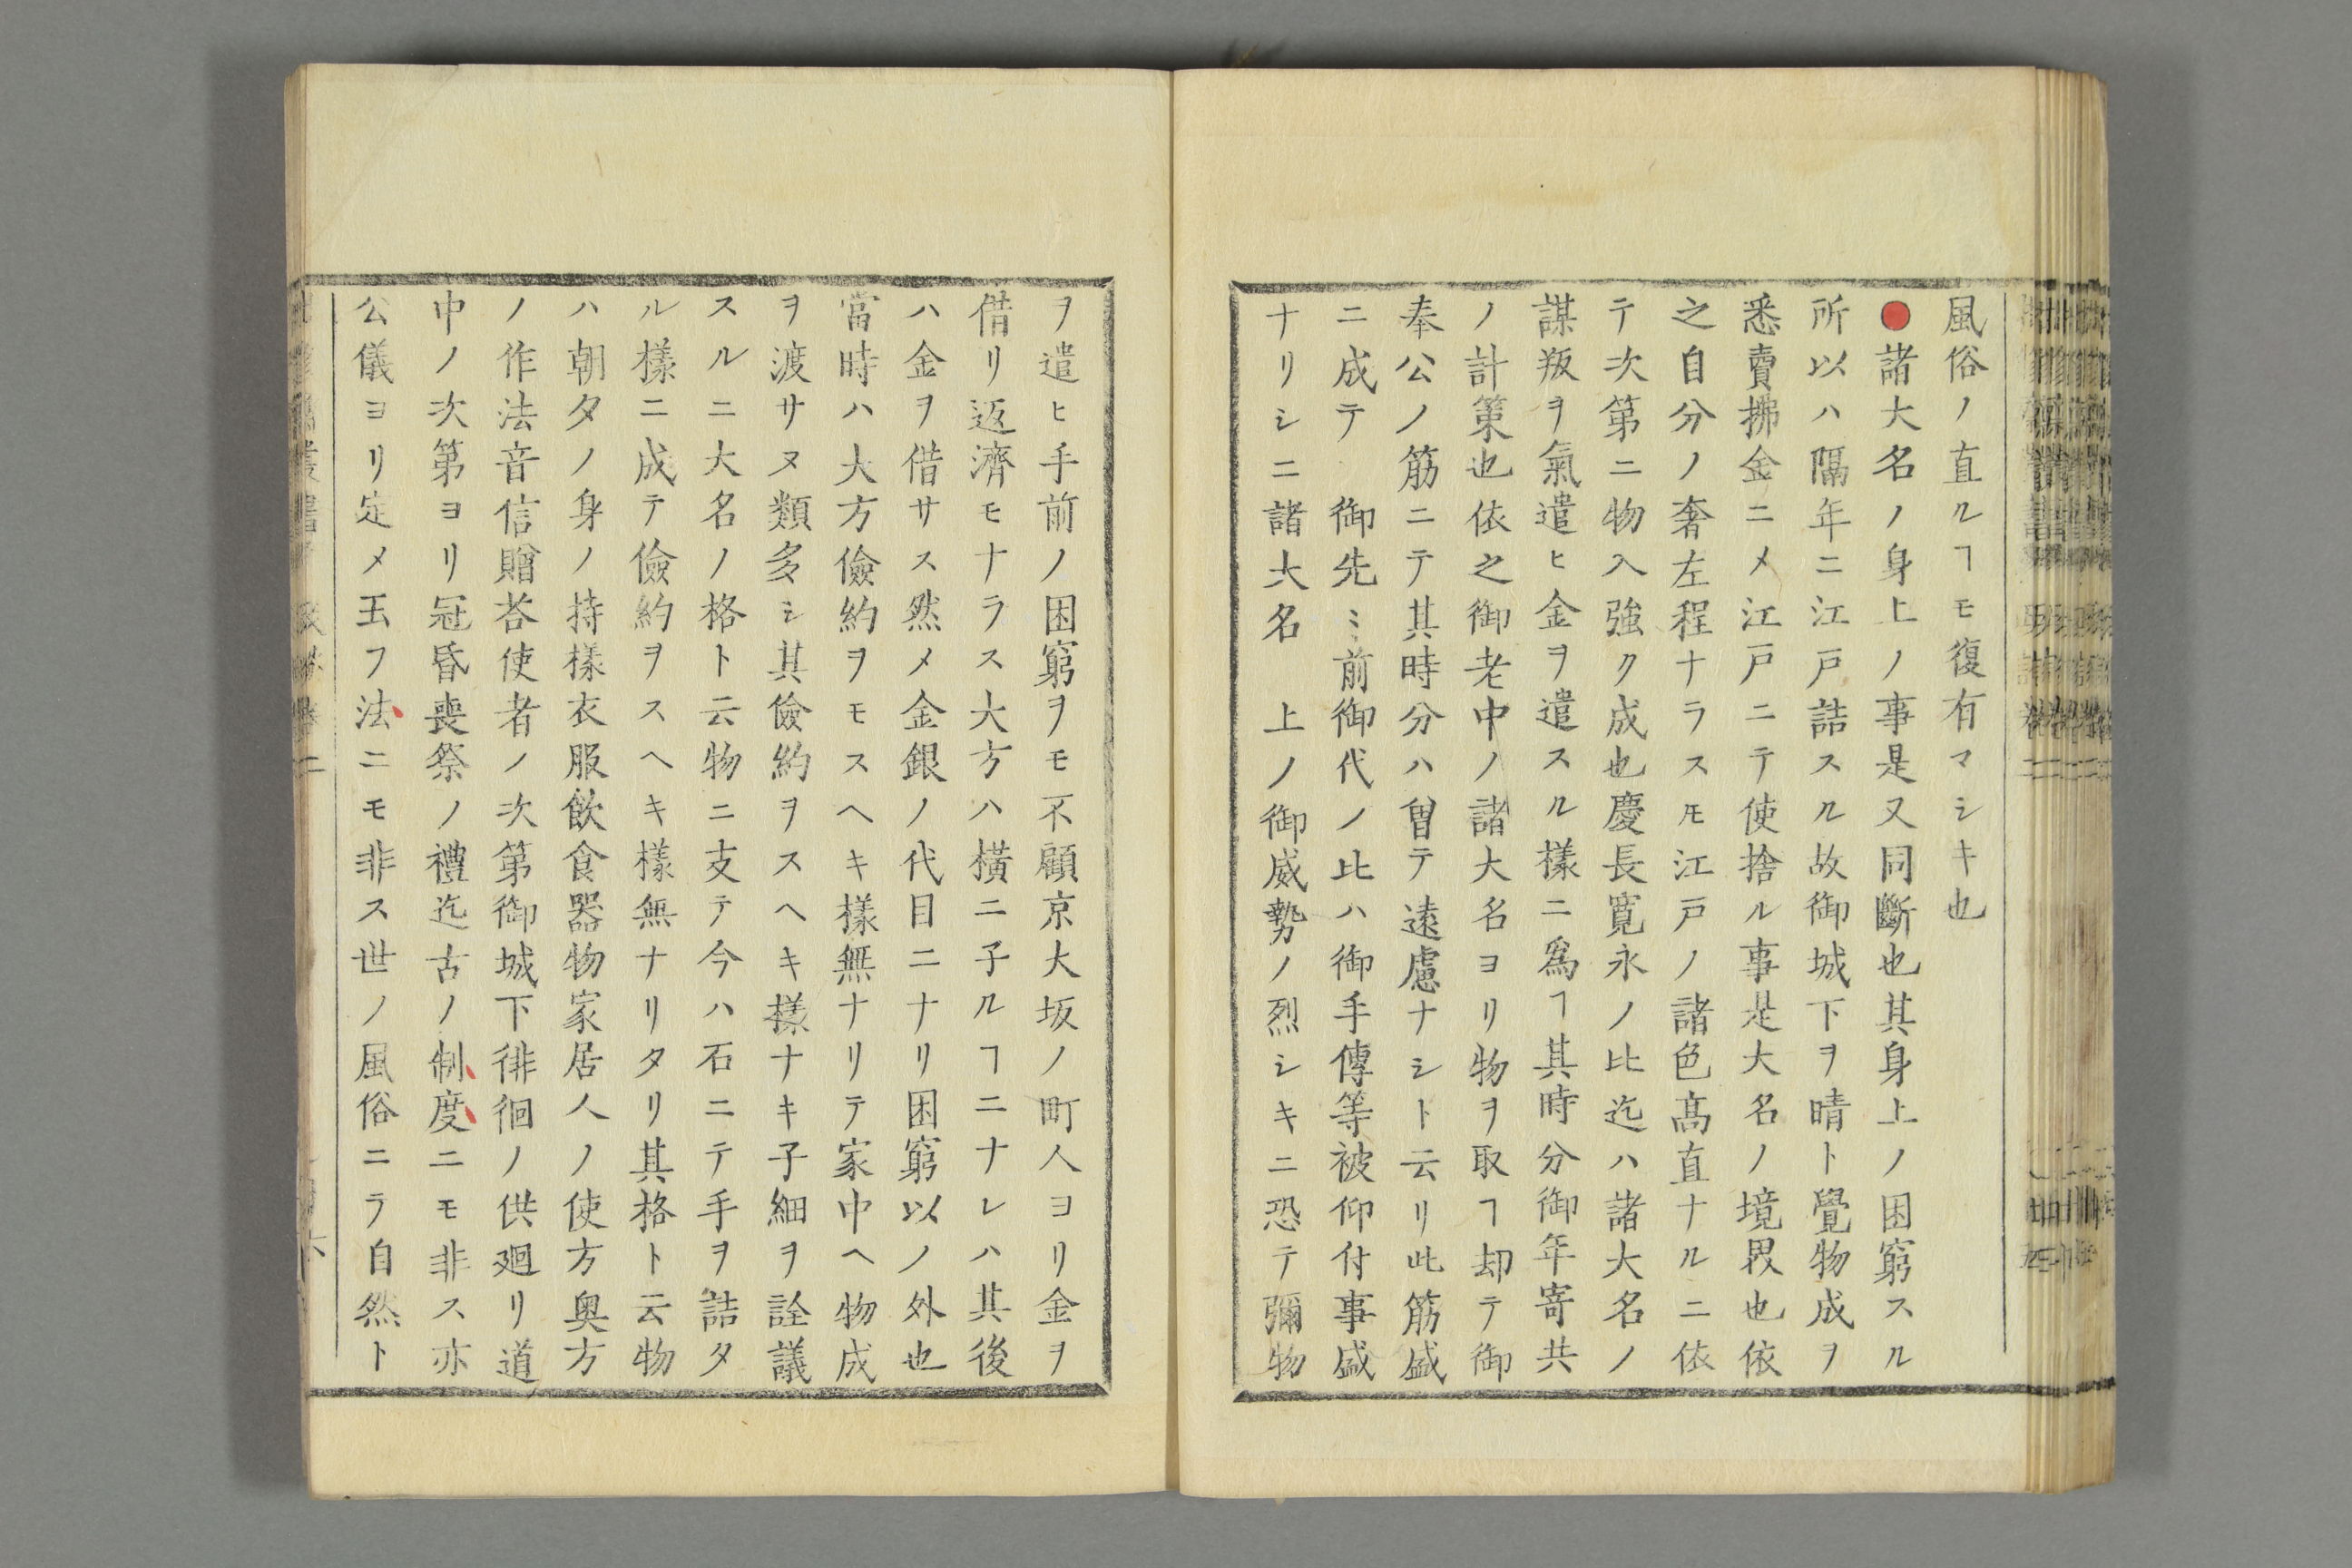 風俗ノ直ルヿモ復有マシキ也
●諸大名ノ身上ノ事是又同斷也其身上ノ困窮スル
所以ハ隔年ニ江戸詰スル故御城下ヲ晴ト覺物成ヲ
悉賣拂金ニメ江戸ニテ使捨ル事是大名ノ境界也依
之自分ノ奢左程ナラスモ江戸ノ諸色髙直ナルニ依
テ次第ニ物入強ク成也慶長寛永ノ比迄ハ諸大名ノ
謀叛ヲ氣遣ヒ金ヲ遣スル樣ニ爲ヿ其時分御年寄共
ノ計策也依之御老中ノ諸大名ヨリ物ヲ取ヿ却テ御
奉公ノ筋ニテ其時分ハ曽テ遠慮ナシト云リ此筋盛
ニ成テ 御先ミ前御代ノ比ハ御手傳等被仰付事盛
ナリシニ諸大名 上ノ御威勢ノ烈シキニ恐テ彌物
ヲ遣ヒ手前ノ困窮ヲモ不顧京大坂ノ町人ヨリ金ヲ
借リ返濟モナラス大方ハ横ニ子ルヿニナレハ其後
ハ金ヲ借サス然メ金銀ノ代目ニナリ困窮以ノ外也
當時ハ大方儉約ヲモスヘキ樣無ナリテ家中ヘ物成
ヲ渡サヌ類多シ其儉約ヲスヘキ樣ナキ子細ヲ詮議
スルニ大名ノ格ト云物ニ支テ今ハ石ニテ手ヲ詰タ
ル樣ニ成テ儉約ヲスヘキ樣無ナリタリ其格ト云物
ハ朝夕ノ身ノ持樣衣服飲食器物家居人ノ使方奥方
ノ作法音信贈荅使者ノ次第御城下徘徊ノ供廻リ道
中ノ次第ヨリ冠昏喪祭ノ禮迄古ノ制度ニモ非ス亦
公儀ヨリ定メ玉フ法ニモ非ス世ノ風俗ニラ自然ト